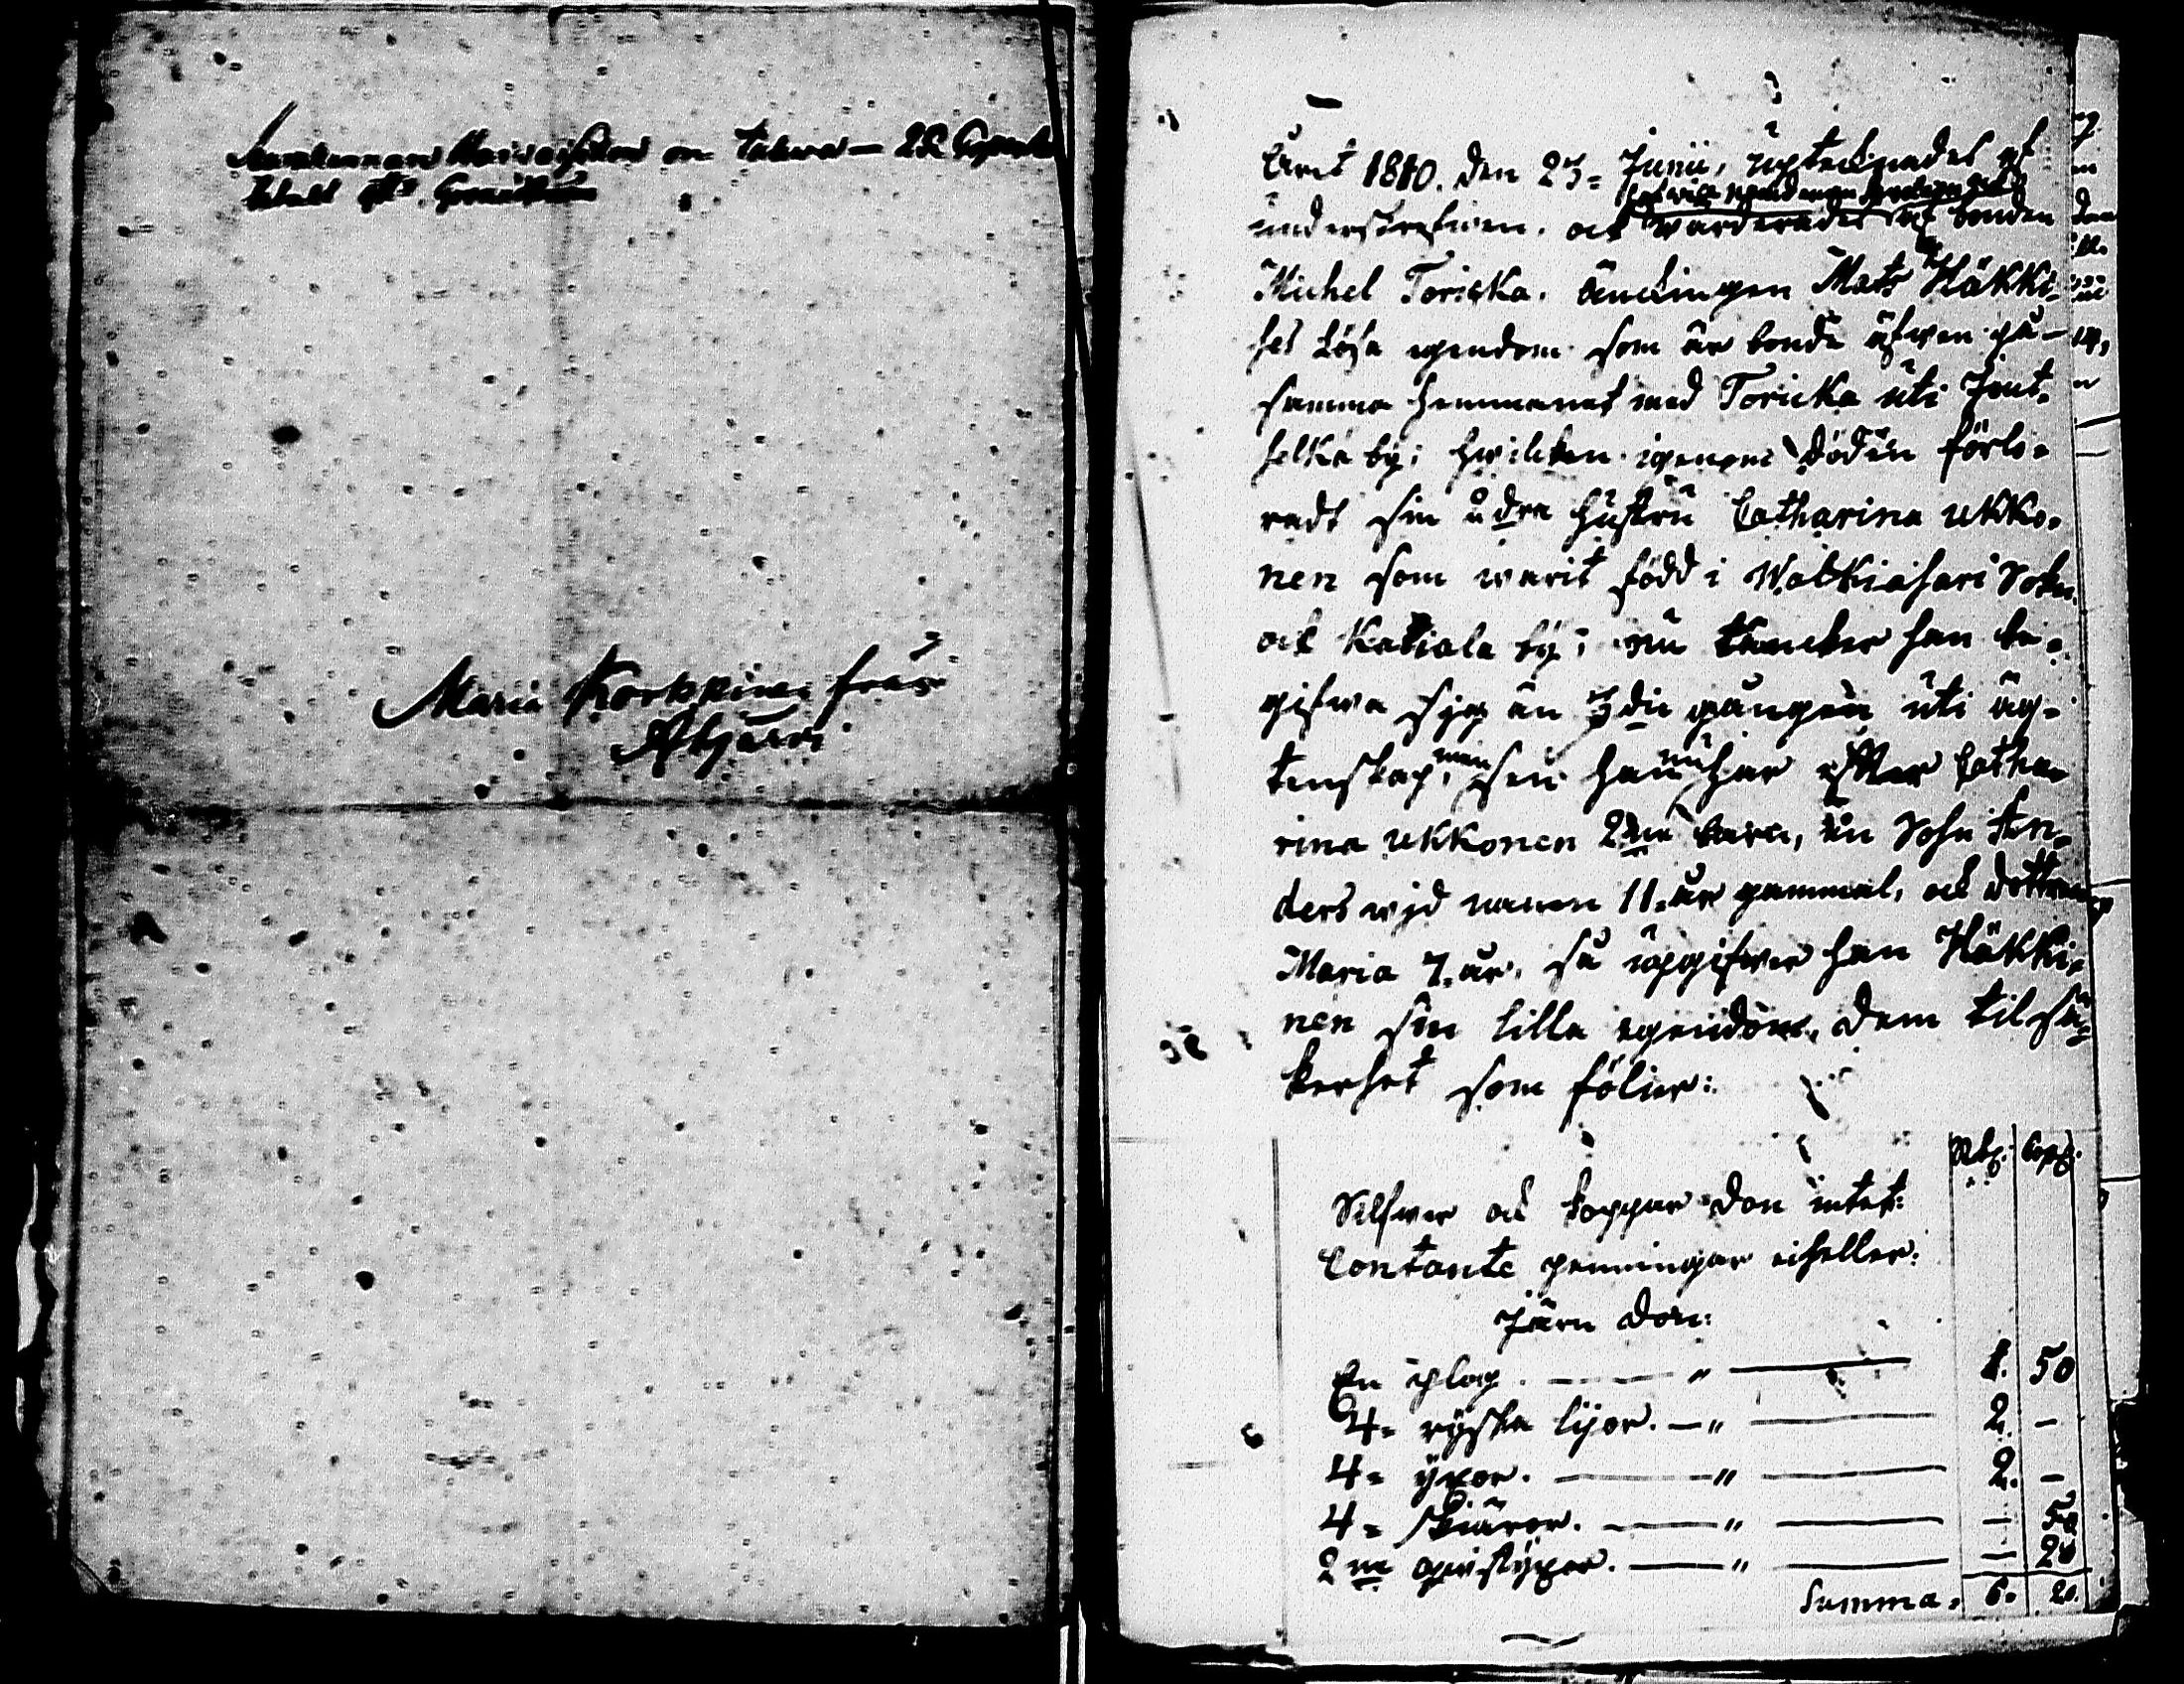 Maria Korkkinen från
Ahjärvi
Året 1810. den 23= Junii, uptecknades af
underskrefwen. ock warderades af bonden
Michel Toricka. Änckingen Mats Häkki=
ses Lösa egendom som är bonde äfwen på
samma hemmanet med Toricka uti Jout=
selkä by; hwilcken igenom döden förlo=
radt sin adra hustru Catharina Ukko=
nen som warit född i Walkiasari Sokn
ock Katiala by; nu täncker han be=
gifwa sig än 3die gången uti äg=
tenskap, men som han nu har efter Catha=
rina Ukkonen 2ne barn, en Sohn An=
ders wid namn 11. år gammal, ock dottren
Maria 7. år. så upgifwer han Häkki=
nen sin lilla egendom, dem til sä=
kerhet som följer:
Rub. Cop.
Silfwer ock koppar don intet.
Contante penningar ei heller.
Järn don:
En plog. — " — 1. 50
4= ryska lijor. — " — 2. —
4= yxor. — " — 2. —
4= skiäror. — " — — 50
2ne — " — — 20
Summa. 6. 20.